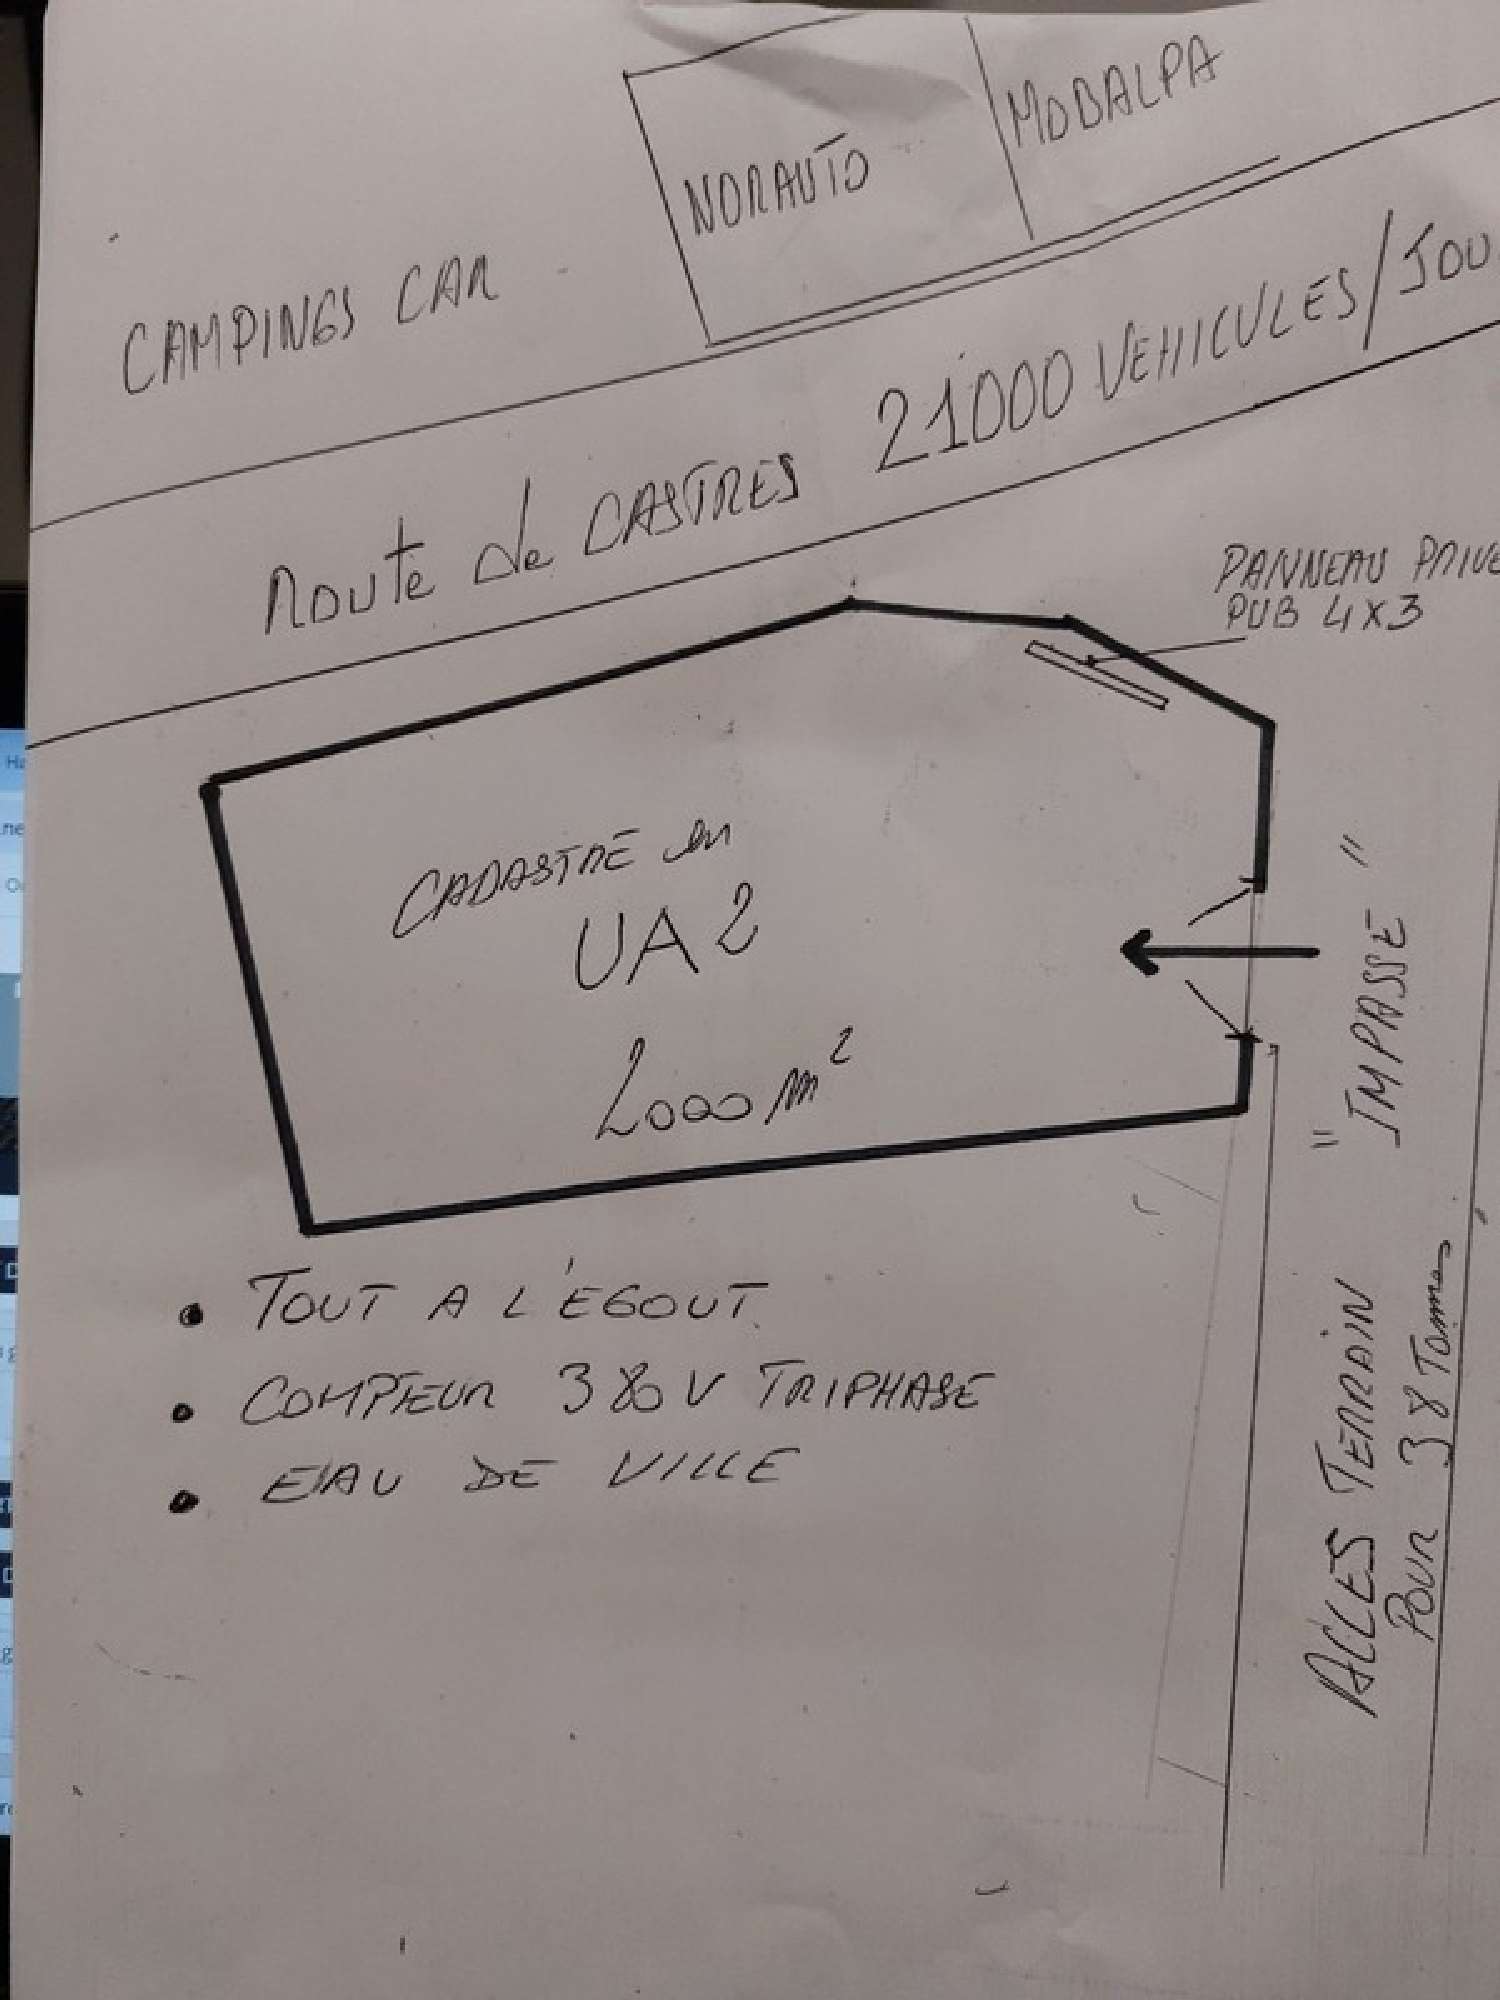 NORAUTO
MOBALPA
CAMPINGS CAR
ROUTE de CASTRES 21000 VEHICULES/JOU
PANNEAU PRIVE
PUB 4X3
CADASTRE en
UA2
2000 m²
"IMPASSE"
ACCES TERRAIN
POUR 38 Tonnes
• TOUT A L'EGOUT
• COMPTEUR 380V TRIPHASE
• EAU DE VILLE